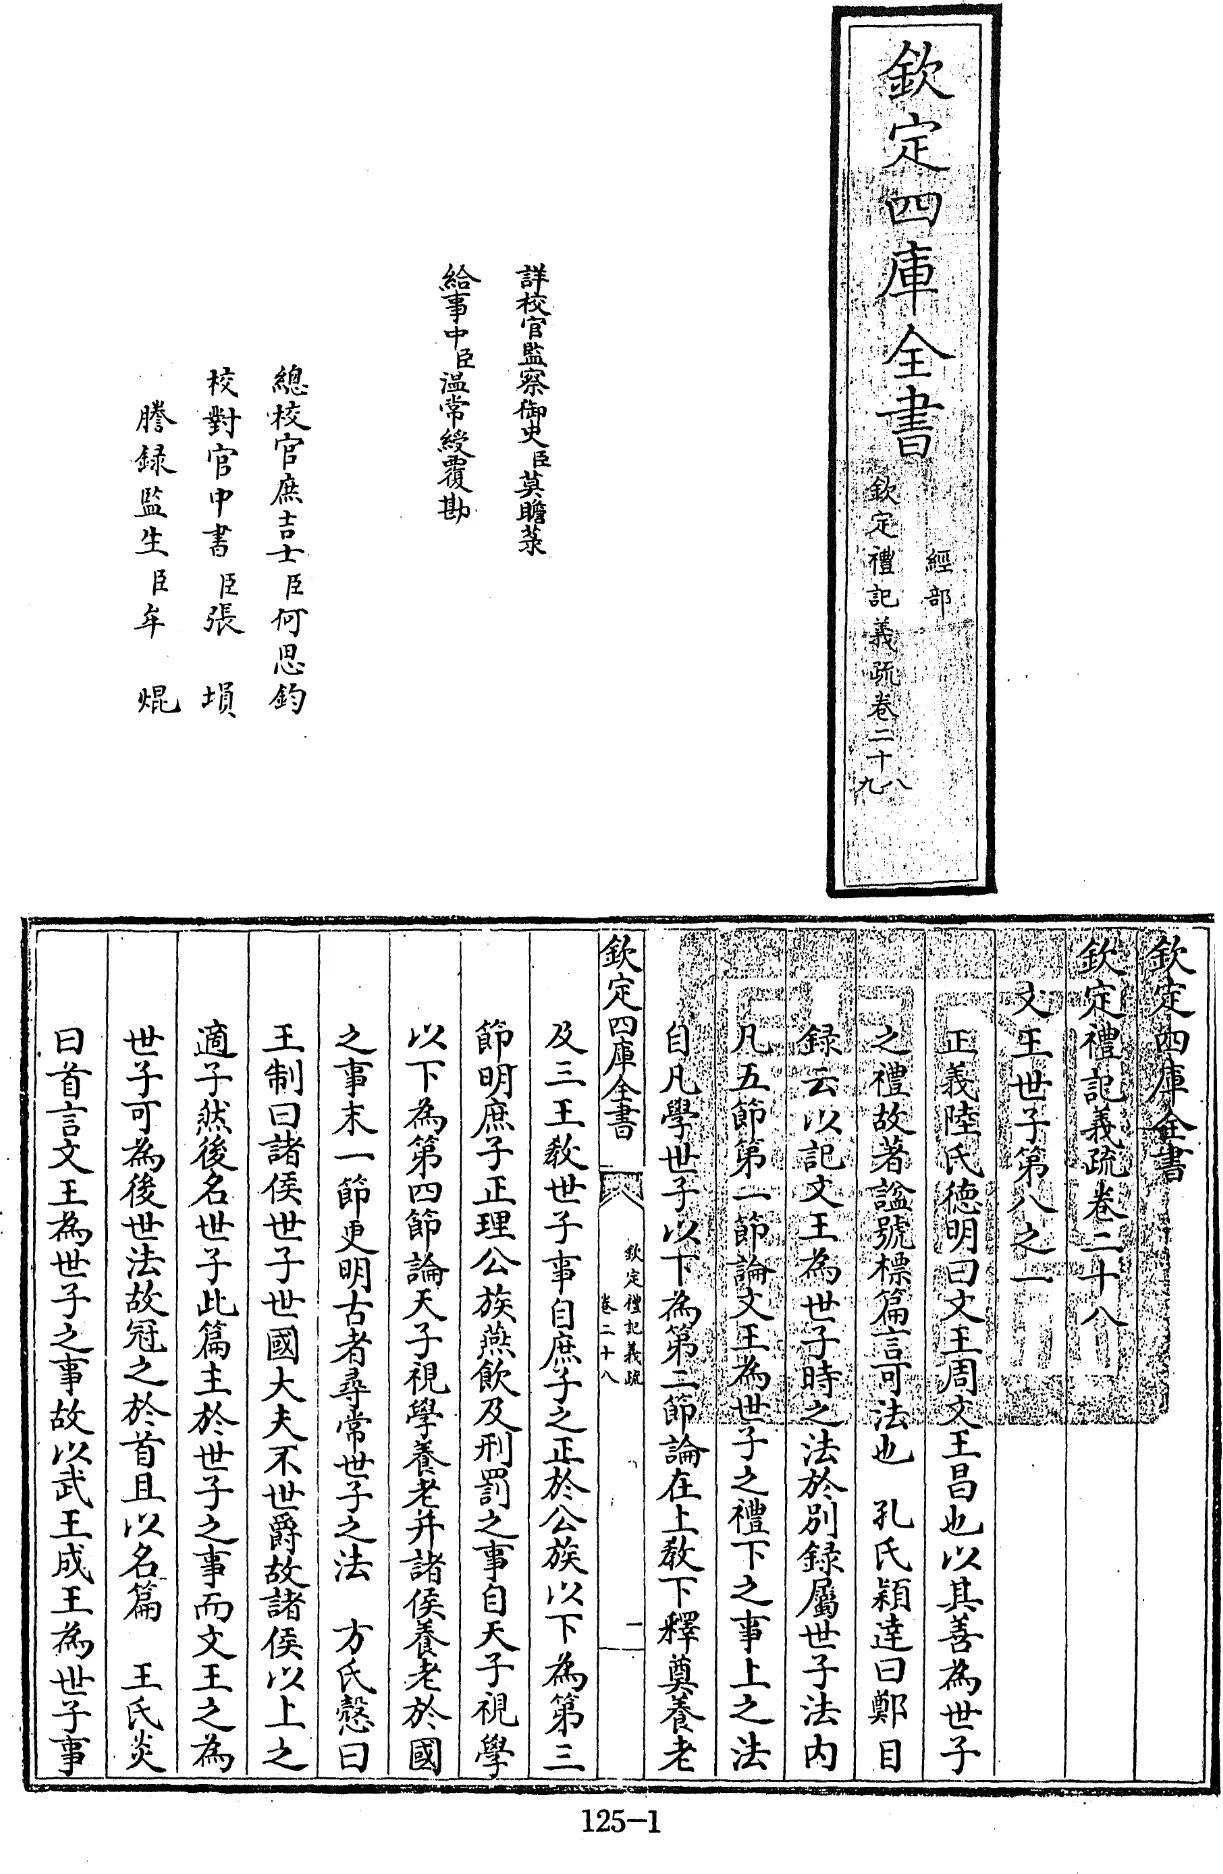 欽定四庫全書
經部
欽定禮記義疏卷二十八
九
詳校官監察御史臣莫瞻菉
給事中臣温常綬覆勘
總校官庶吉士臣何思鈞
校對官中書臣張塤
謄録監生臣牟焜
欽定四庫全書
欽定禮記義疏卷二十八
文王世子第八之一
正義陸氏德明曰文王周文王昌也以其善為世子
之禮故著諡號標篇言可法也 孔氏穎達曰鄭目
録云以記文王為世子時之法於別錄屬世子法内
凡五節第一節論文王為世子之禮下之事上之法
自凡學世子以下為第二節論在上教下釋奠養老
欽定四庫全書
欽定禮記義疏
卷二十八
一
及三王教世子事自庶子之正於公族以下為第三
節明庶子正理公族燕飲及刑罰之事自天子視學
以下為第四節論天子視學養老并諸侯養老於國
之事末一節更明古者尋常世子之法 方氏慤曰
王制曰諸侯世子世國大夫不世爵故諸侯以上之
適子然後名世子此篇主於世子之事而文王之為
世子可為後世法故冠之於首且以名篇 王氏炎
曰首言文王為世子之事故以武王成王為世子事
125-1